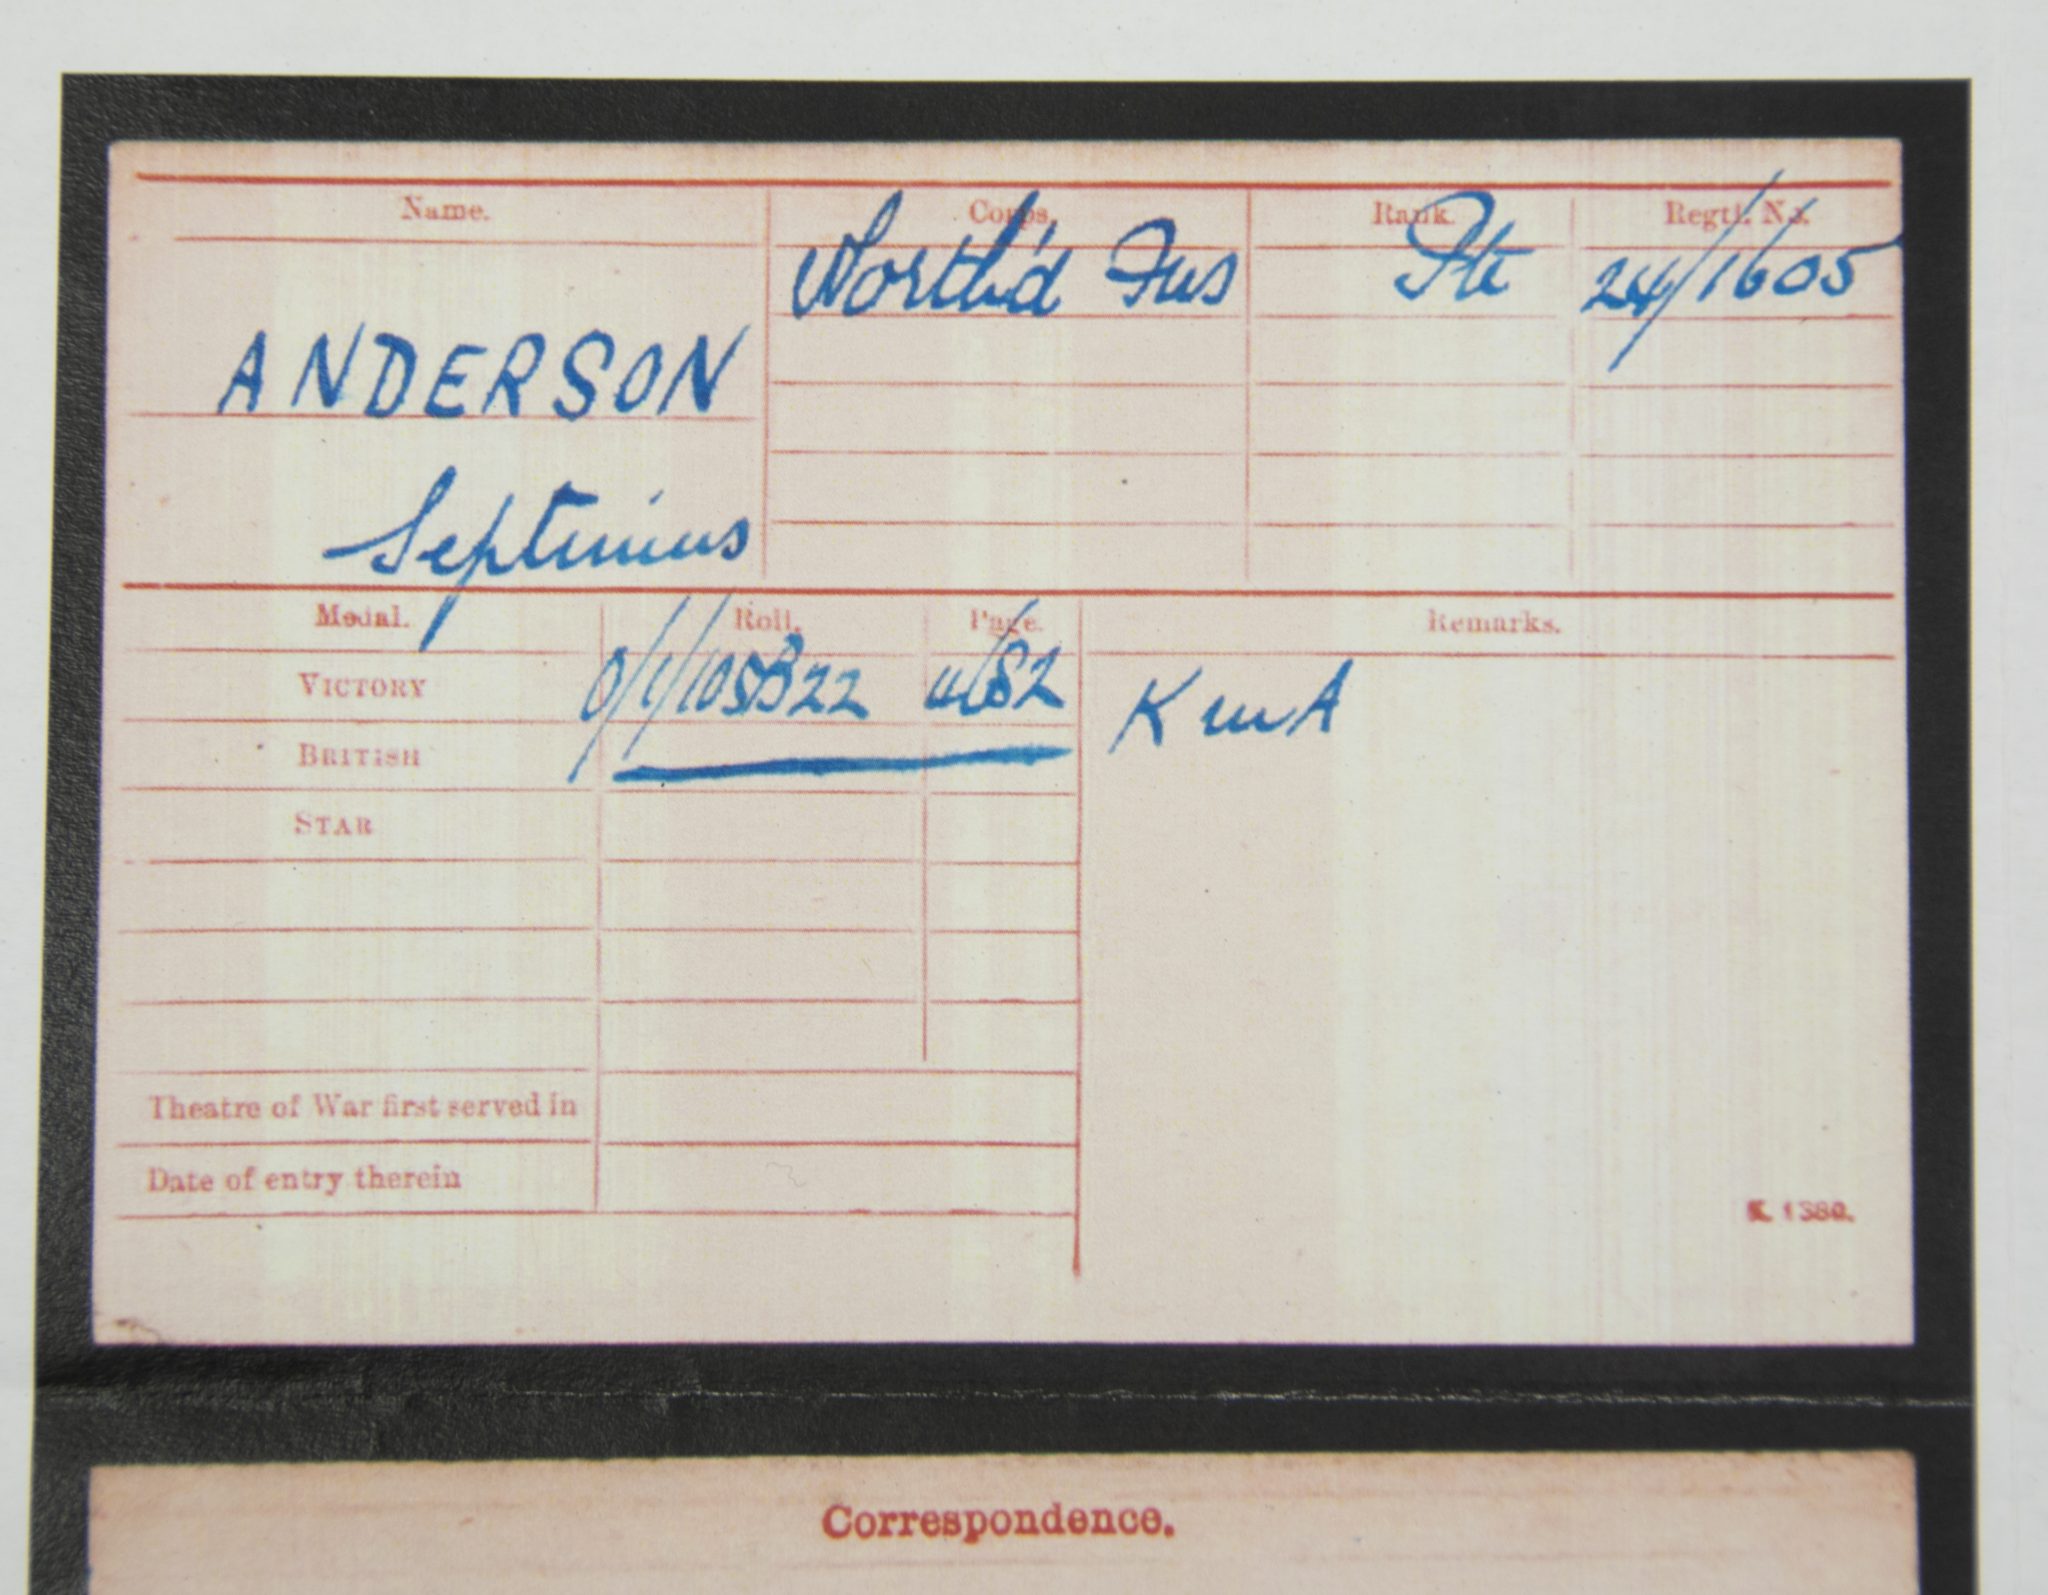 Name. Corps. Rank. Regtl. No.
North'd Fus Pte 24/1605
ANDERSON
Septimius
Medal. Roll. Page. Remarks.
VICTORY 0/1/105B22 K in A
BRITISH
STAR
Theatre of War first served in
Date of entry therein
K. 1380.
Correspondence.